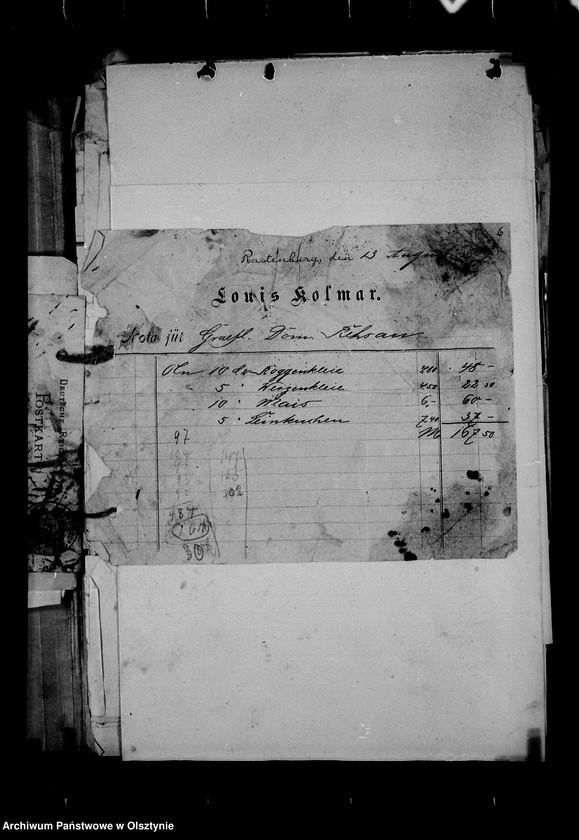 6
Rastenburg, den 13 August
Louis Kolmar.
Nota für Gräfl. Dom. Rehsau
10 Ctr Roggenkleie 4,80 48 –
5 " Weizenkleie 4,50 22 50
10 " Mais 6,– 60 –
5 " Leinkuchen 7,40 37 –
M 167 50
97
102
484
30
DEUTSCHE REICHS
POSTKARTE
Archiwum Państwowe w Olsztynie